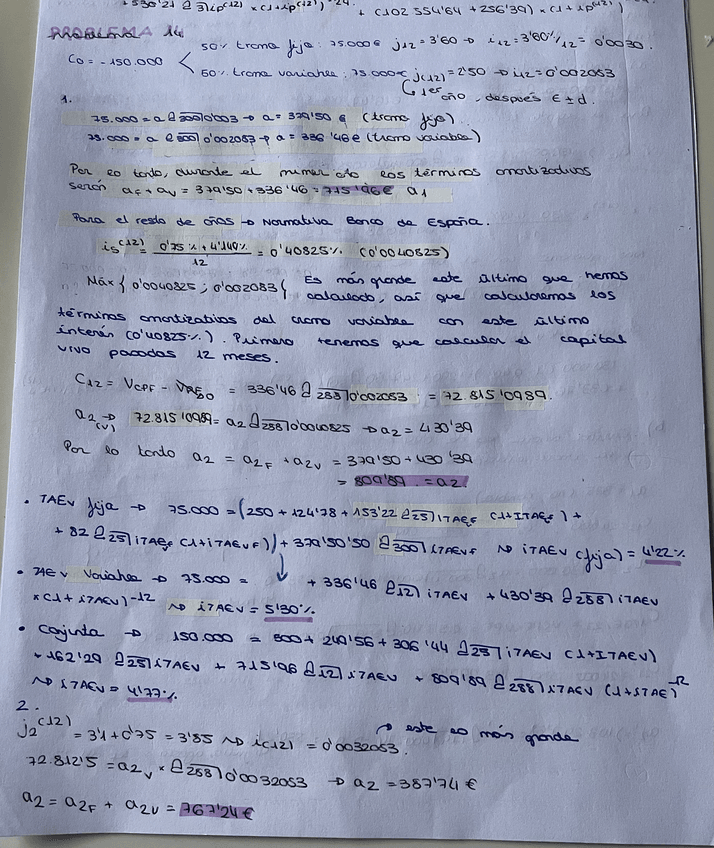 +530'21 a 3 i p(12) × (1+ip(12))-24 + (102 554'64 + 256'39) × (1+ip(12))
PROBLEMA 14
C0 = -150.000
50% tramo fijo: 75.000€ j12=3'60 → i12=3'60%/12 = 0'0030.
50% tramo variable: 75.000€ j(12)=2'50 → i12=0'002083
↳ 1er año, después E ± d.
1.
75.000 = a a300̅|0'003 → a = 379'50 € (tramo fijo)
75.000 = a a300̅|0'002083 → a = 336'46€ (tramo variable)
Por lo tanto, durante el primer año los términos amortizativos
serán aF + aV = 379'50 + 336'46 = 715'96€ a1
Para el resto de años → Normativa Banco de España.
is(12) = 0'75% + 4'149% / 12 = 0'40825% (0'0040825)
Máx { 0'0040825 ; 0'002083 { Es más grande este último que hemos
calculado, así que calcularemos los
términos amortizativos del tramo variable con este último
interés (0'40825%). Primero tenemos que calcular el capital
vivo pasados 12 meses.
C12 = VCPF - = 336'46 a288̅|0'002083 = 72.815'0989.
a2(V) → 72.815'0989 = a2 a288̅|0'0040825 → a2 = 430'39
Por lo tanto a2 = a2F + a2V = 379'50 + 430'39
= 809'89 = a2.
• TAEv fija → 75.000 = (250 + 124'78 + 153'22 a25̅|iTAEvF (1+iTAEvF) +
+ 82 a25̅|iTAEvF (1+iTAEvF)) + 379'50'50 a300̅|iTAEvF ⇝ iTAEv (fija) = 4'22%
• TAEv Variable → 75.000 = ↓ + 336'46 a12̅|iTAEV + 430'39 a288̅|iTAEV
×(1+iTAEV)-12 ⇝ iTAEV = 5'30%
• Conjunta → 150.000 = 500 + 249'56 + 306'44 a25̅|iTAEV (1+ITAEV)
+ 162'29 a25̅|iTAEV + 715'96 a12̅|iTAEV + 809'89 a288̅|iTAEV (1+iTAE)-12
⇝ iTAEV = 4'77%
2.
j2(12) = 3'1 + 0'75 = 3'85 ⇝ i(12) = 0'0032083. → este es más grande
72.812'5 = a2V × a288̅|0'0032083 → a2 = 387'74 €
a2 = a2F + a2V = 767'24€